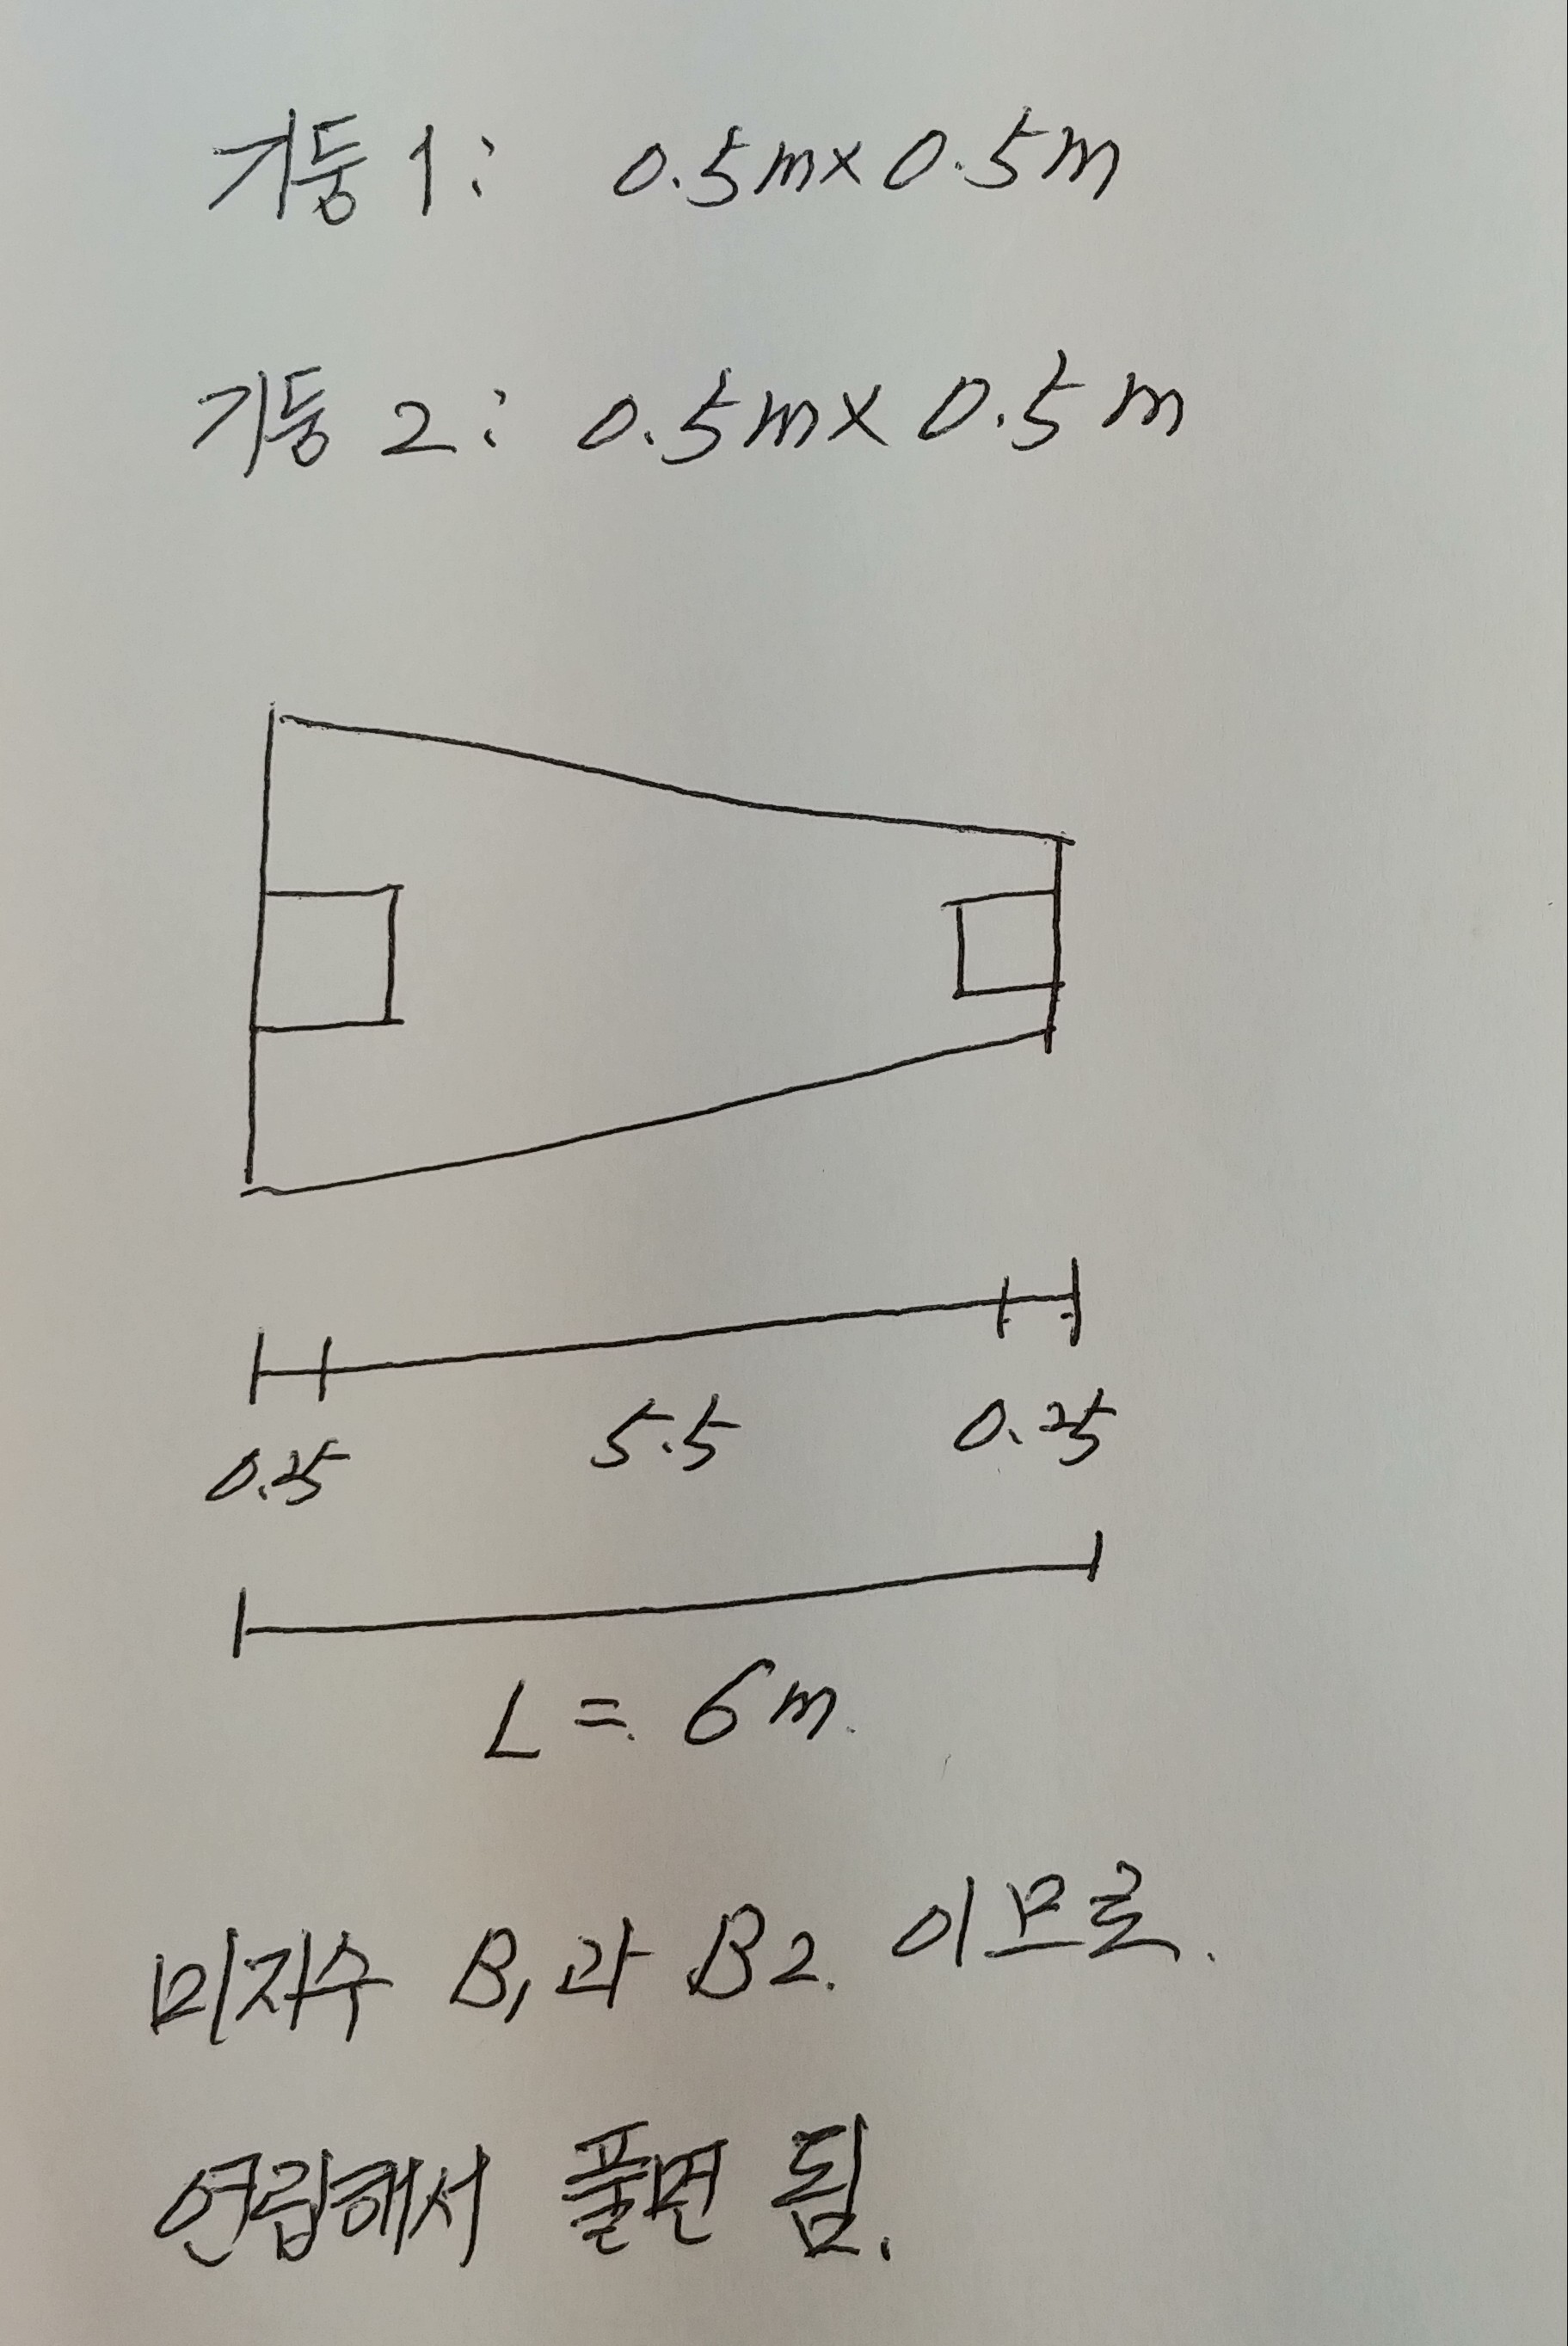 기둥 1: 0.5m×0.5m
기둥 2: 0.5m×0.5m
0.25 5.5 0.25
L = 6m.
미지수 B₁과 B2. 이므로.
연립해서 풀면 됨.